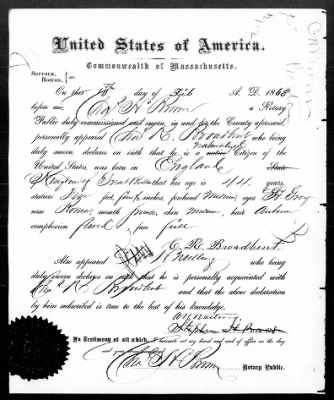 United States of America.
Commonwealth of Massachusetts.
SUFFOLK, BOSTON, } ss.
On this day of Feb A. D. 1868
before me, Chas. H. a Notary
Public duly commissioned and sworn, in and for the County aforesaid,
personally appeared Chas. R. Broadbent who being
duly sworn, declares on oath that he is a native Naturalized Citizen of the
United States, was born in England State
Kingdom of Great Britain that his age is 44 years,
stature Five feet four ½ inches, forehead Medium eyes Gray
nose Roman mouth chin Medium, hair Auburn
complexion florid face full
C. R. Broadbent
Also appeared who being
duly sworn deposes on oath that he is personally acquainted with
Chas. R. Broadbent and that the above declaration
by him subscribed is true to the best of his knowledge.
Stephen H.
In Testimony of all which, I hereunto set my hand and seal of office on the day
and year
Chas. H. Notary Public.